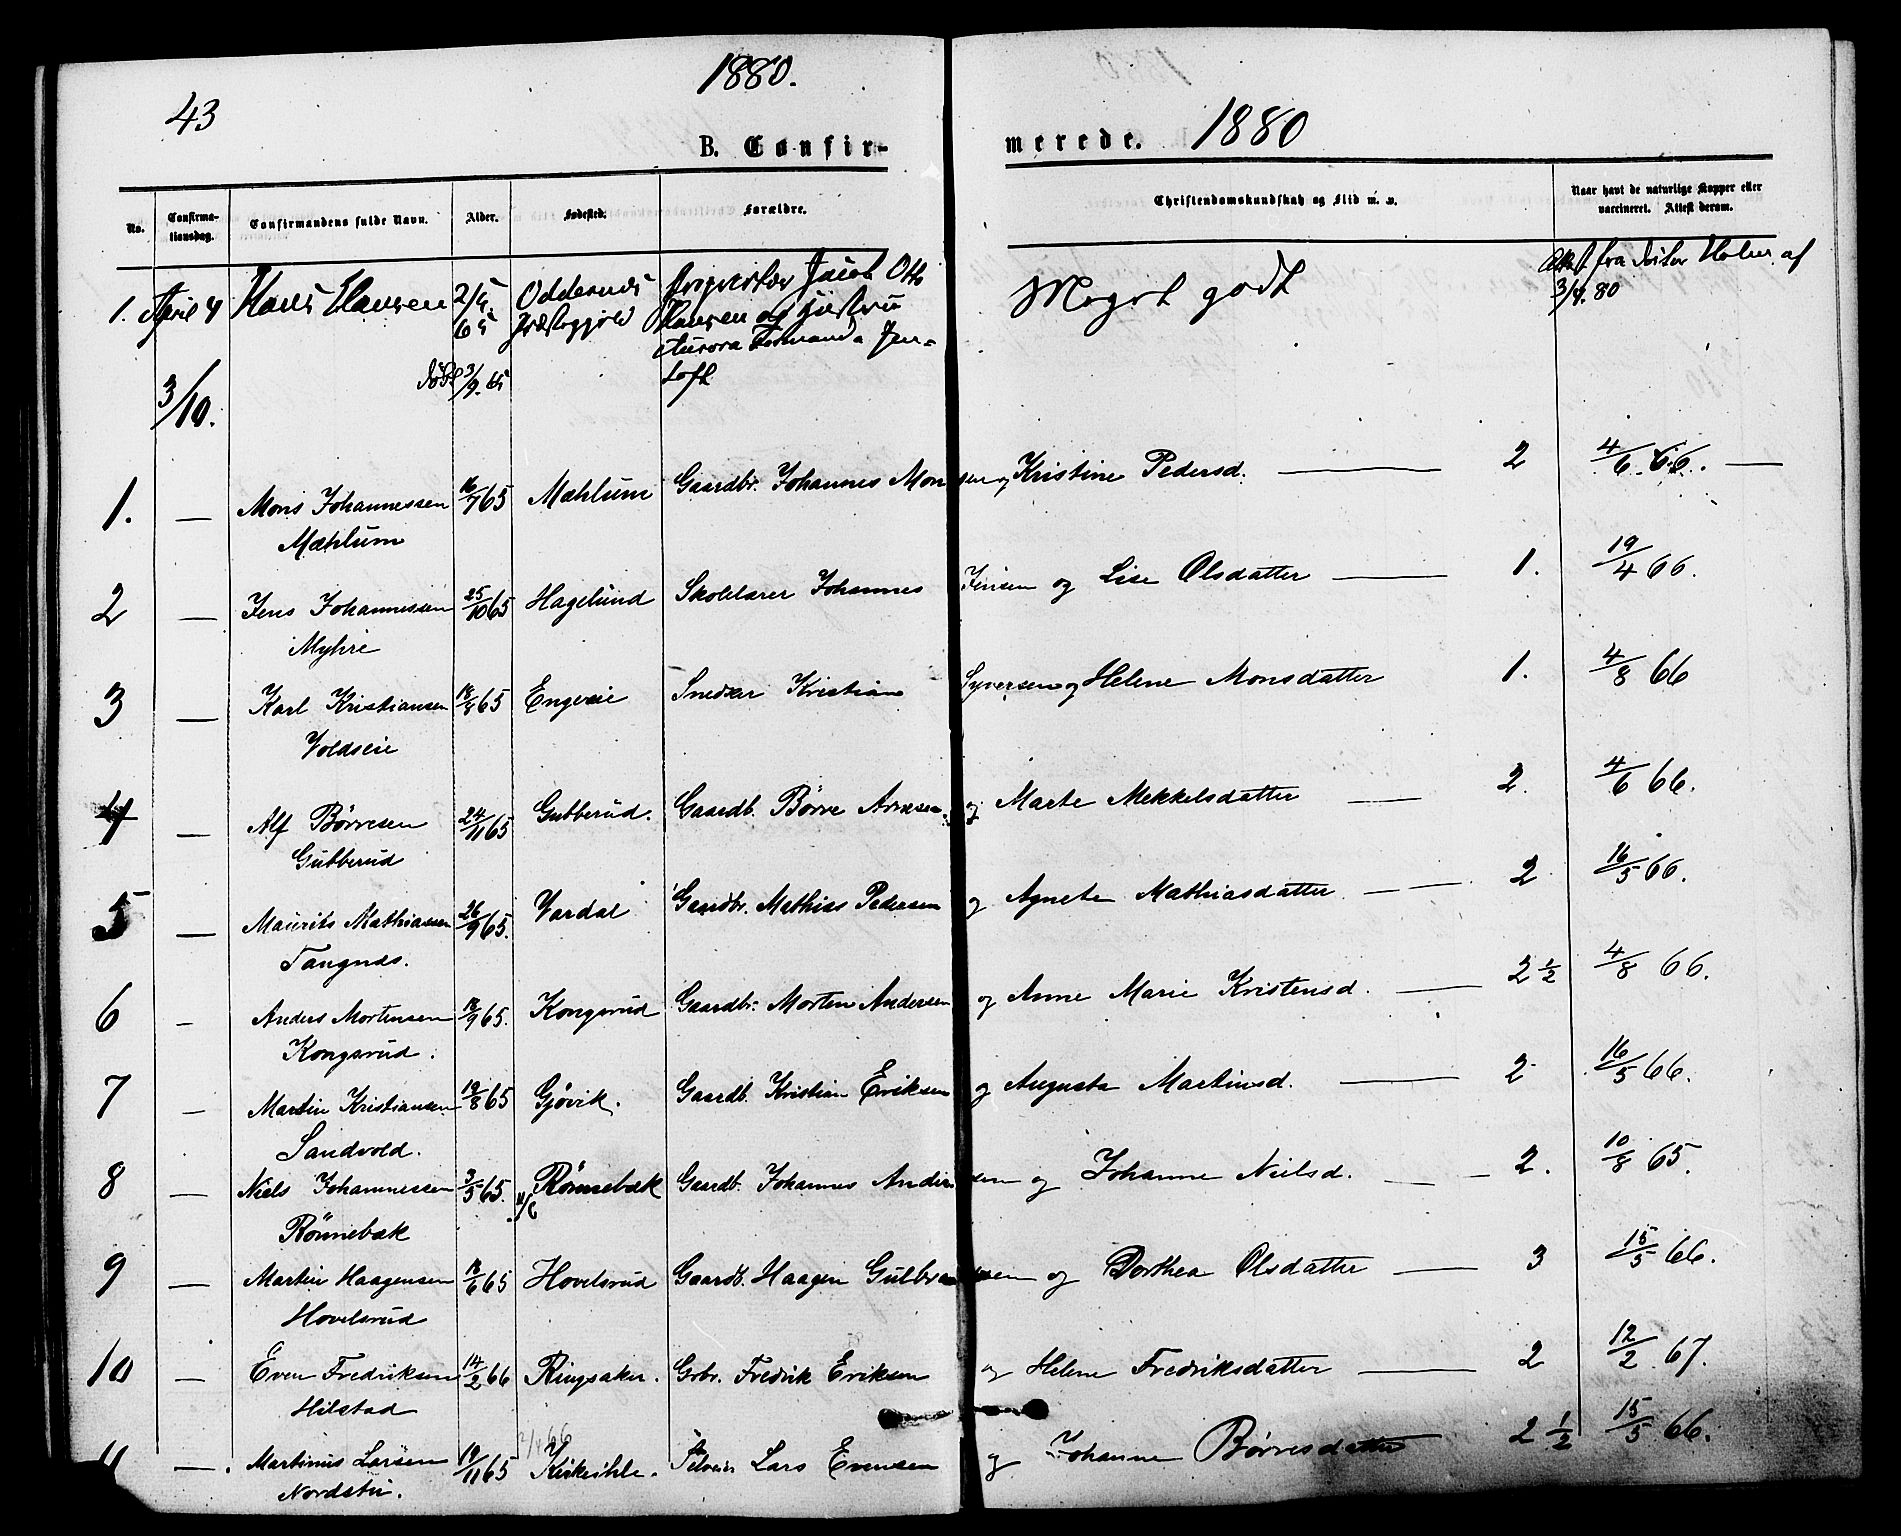 43
1880.
1880
B. Confir-
merede.
No.
Confirma-
tionsdag.
Confirmandens fulde Navn.
Alder.
Fødested.
Forældre.
Christendomskundskab og Flid m. v.
Naar havt de naturlige Kopper eller
vaccineret. Attest derom.
1. April 4 Hans Hansen 2/5 65 Oddernes Præstegjeld Jacob Otto
Hansen og Hustru
Aurora Fernanda Jen-
toft
døbt 3/9. 65
Meget godt
fra Holm af
3/4. 80
3/10.
1. — Mons Johannessen 16/7 65 Mæhlum Gaardbr. Johannes Monsen og Kristine Pedersd. — 2 4/6. 66. —
Mæhlum
2 — Jens Johannessen 25/10 65 Hagelund Skolelærer Johannes Jensen og Lise Olsdatter — 1. 19/4 66.
Myhre
3 — Karl Kristiansen 18/8 65 Engeeie Snedker Kristian Syversen og Helene Monsdatter 1. 4/8 66
Voldseie
4 — Alf Børresen 24/11 65 Gubberud. Gaardb. Børre Arnesen og Marte Mekkelsdatter — 2. 4/6 66.
Gubberud
5 — Maurits Mathiassen 26/9 65. Vardal Gaardbr. Mathias Pedersen og Agnete Mathiasdatter — 2 16/5 66.
Tangnæs.
6 — Anders Mortensen 18/9 65. Kongsrud Gaardbr. Morten Andersen og Anne Marie Kristensd. — 2 1/2 4/8 66.
Kongsrud.
7 — Martin Kristiansen 19/8 65 Gjøvik. Gaardb. Kristian Eriksen og Augusta Martinsd. — 2 16/5 66.
Sandvold.
8 — Niels Johannessen 3/5 65. Rönnebæk Gaardb. Johannes Andersen og Johanne Nielsd. — 2. 10/8 65.
Rönnebæk
9 — Martin Haagensen 18/6 65 Hovelsrud Gaardb. Haagen Gulbrandsen og Dorthea Olsdatter — 3 15/5 66.
Hovelsrud
10 — Even Fredriksen 14/2 66 Ringsaker. Grbr. Fredrik Eriksen og Helene Fredriksdatter — 2 12/2 67.
Hilstad
11 — Martinus Larsen 19/11 65 Kirkeihle. Lars Evensen og Johanne Børresdatter 2 1/2 15/5 66.
Nordstu.